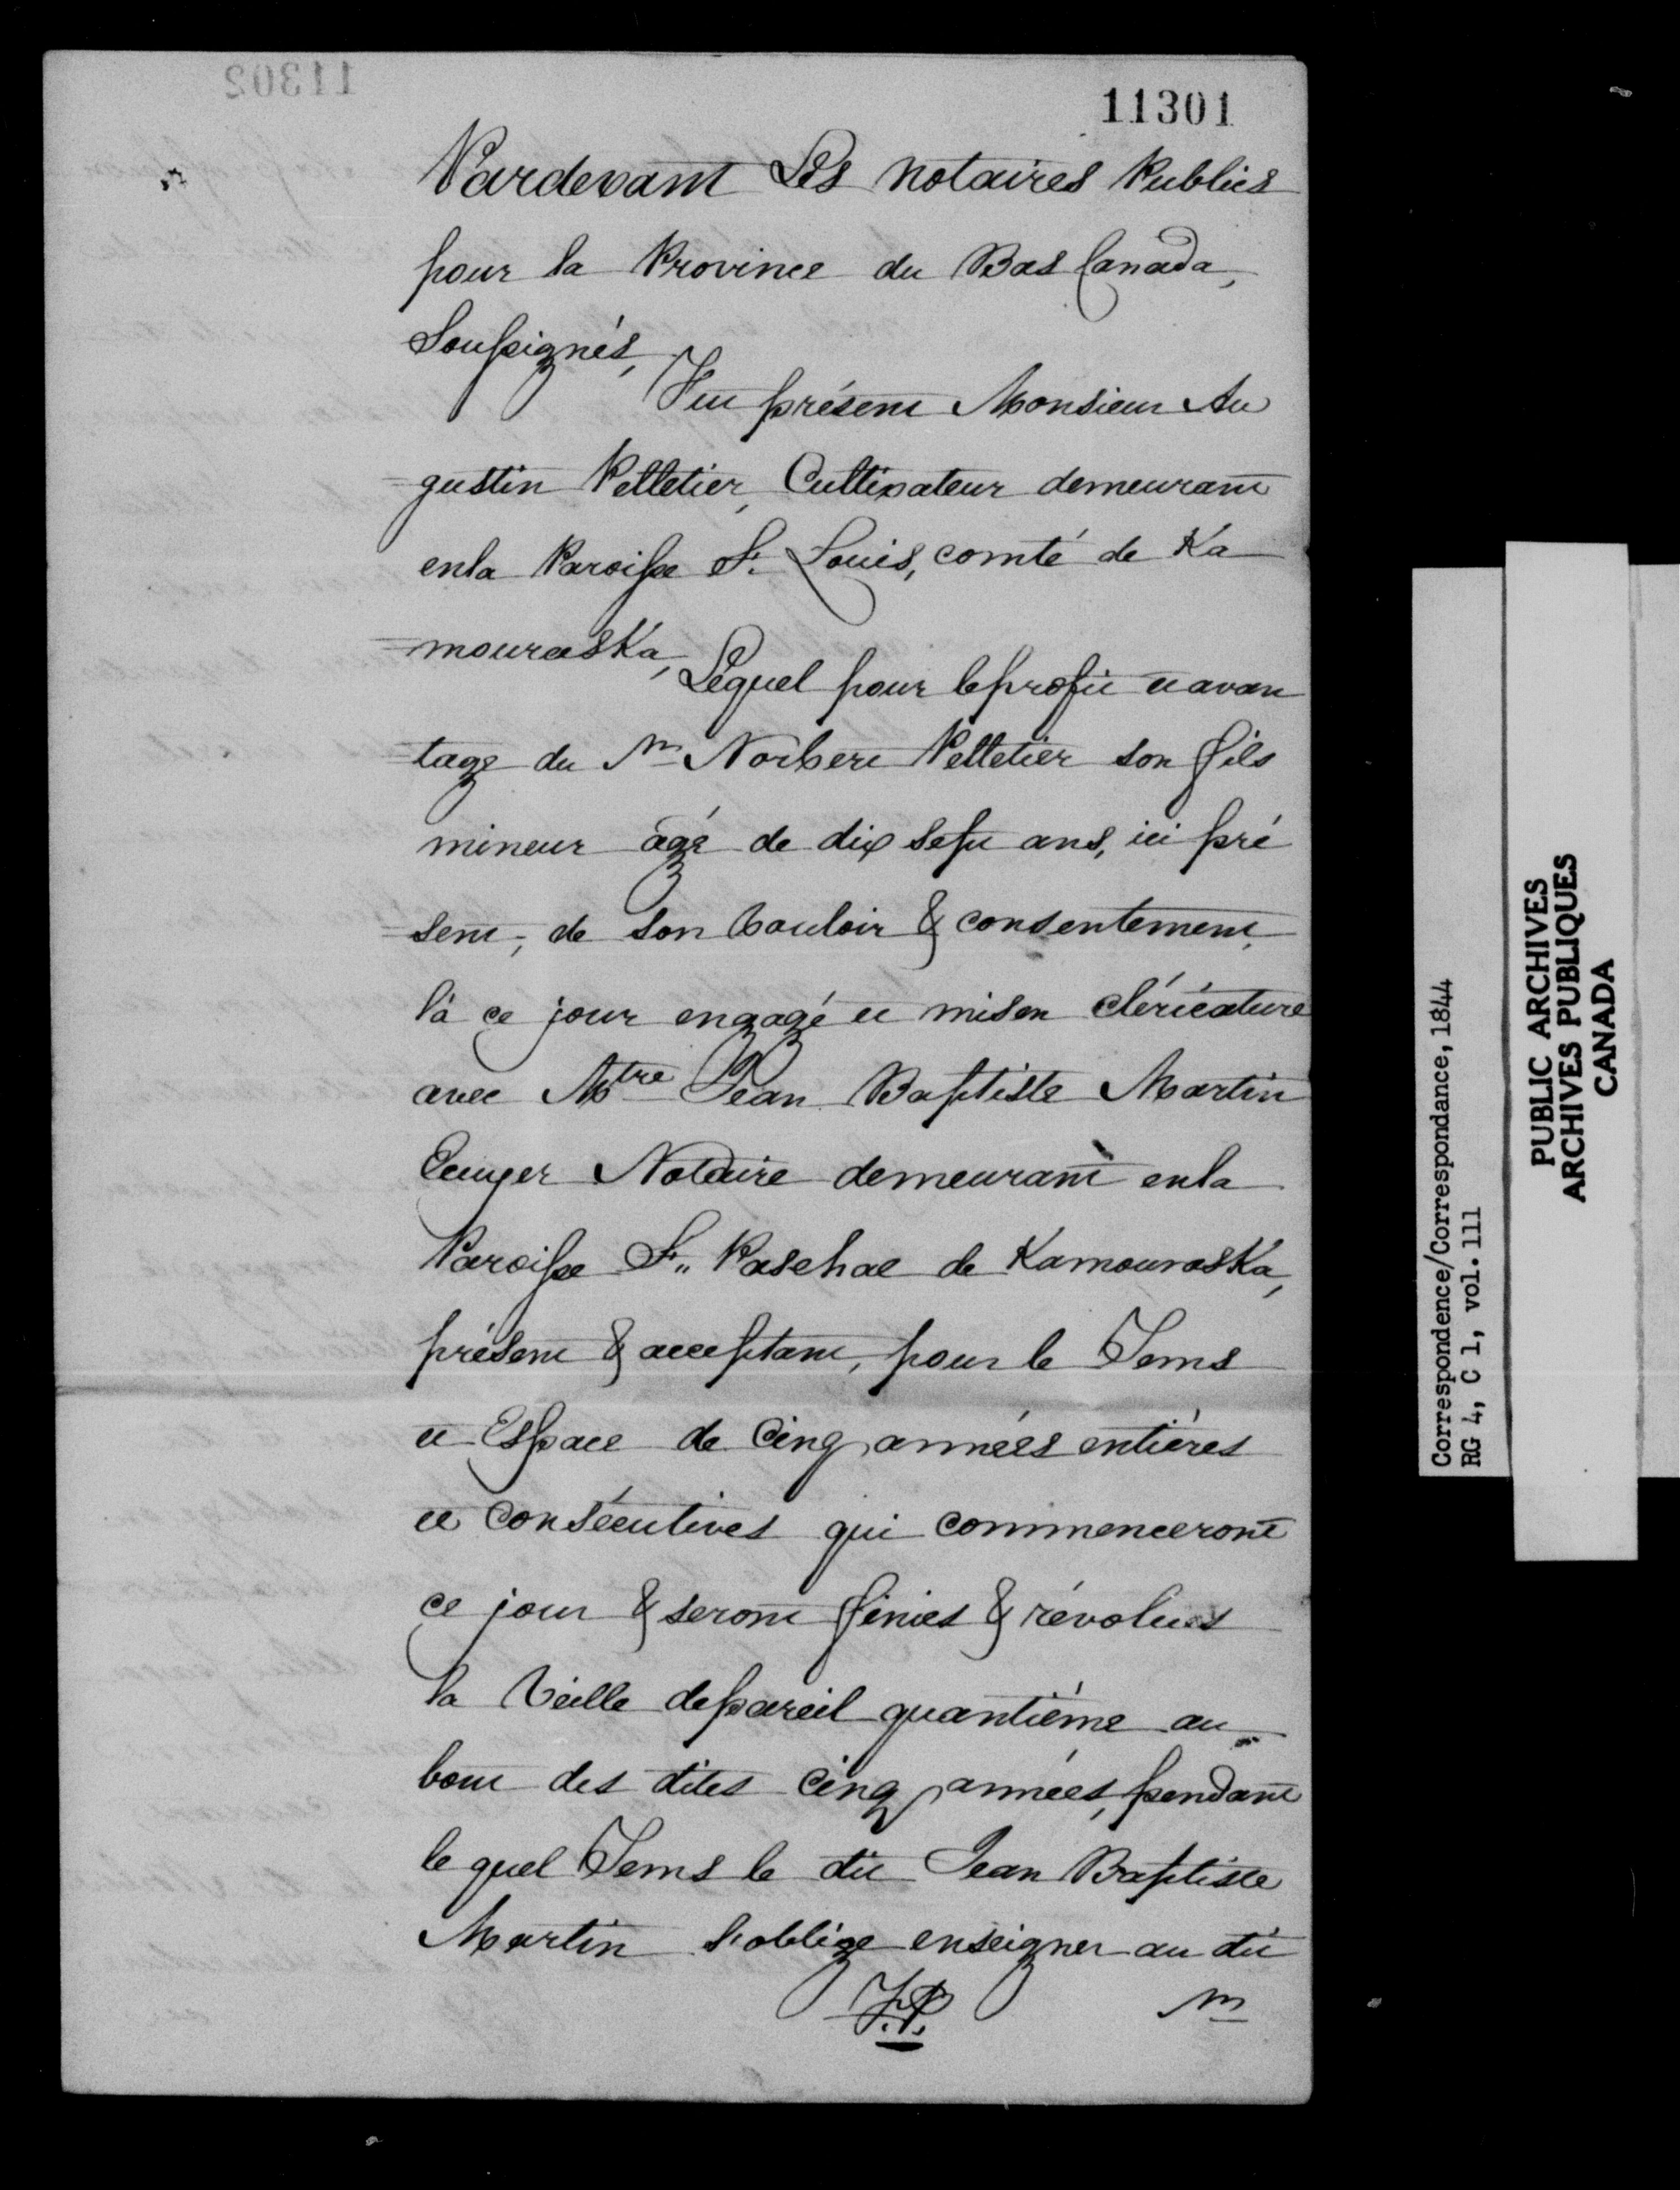 11302
11301
Pardevant Les notaires Publics
pour la Province du Bas Canada,
Soussignés,
Fut présent Monsieur Au
gustin Pelletier, Cultivateur demeurant
en la Paroisse St. Louis, comté de Ka
mouraska,
Lequel pour le profit et avan
tage du Mr Norbert Pelletier son fils
mineur âgé de dix sept ans, ici pré
sent, de son vouloir & consentement,
l'a ce jour engagé et mis en cléricature
avec Mtre Jean Baptiste Martin
Ecuyer Notaire demeurant en la
Paroisse St. Paschal de Kamouraska,
présent & acceptant, pour le Tems
et Espace de Cinq années entières
et Consécutives qui commenceront
ce jour & seront finies & révolues
la Veille de pareil quantième au
bout des dites Cinq années, pendant
le quel Tems le dit Jean Baptiste
Martin s'oblige enseigner au dit
J.P.
Mr
Correspondence/Correspondance, 1844
RG 4, C 1, vol. 111
PUBLIC ARCHIVES
ARCHIVES PUBLIQUES
CANADA